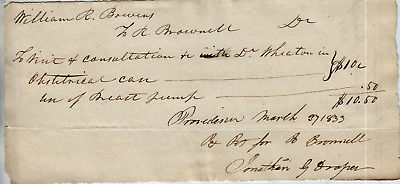 William R. Bowens
To R Brownell Dr
To Visit & consultation &c with Dr Wheaton in
Obstetrical case $10 c
use of Breast pump .50
$10.50
Providence March 27 1833
Rc Pt for R Brownell
Jonathan G Draper